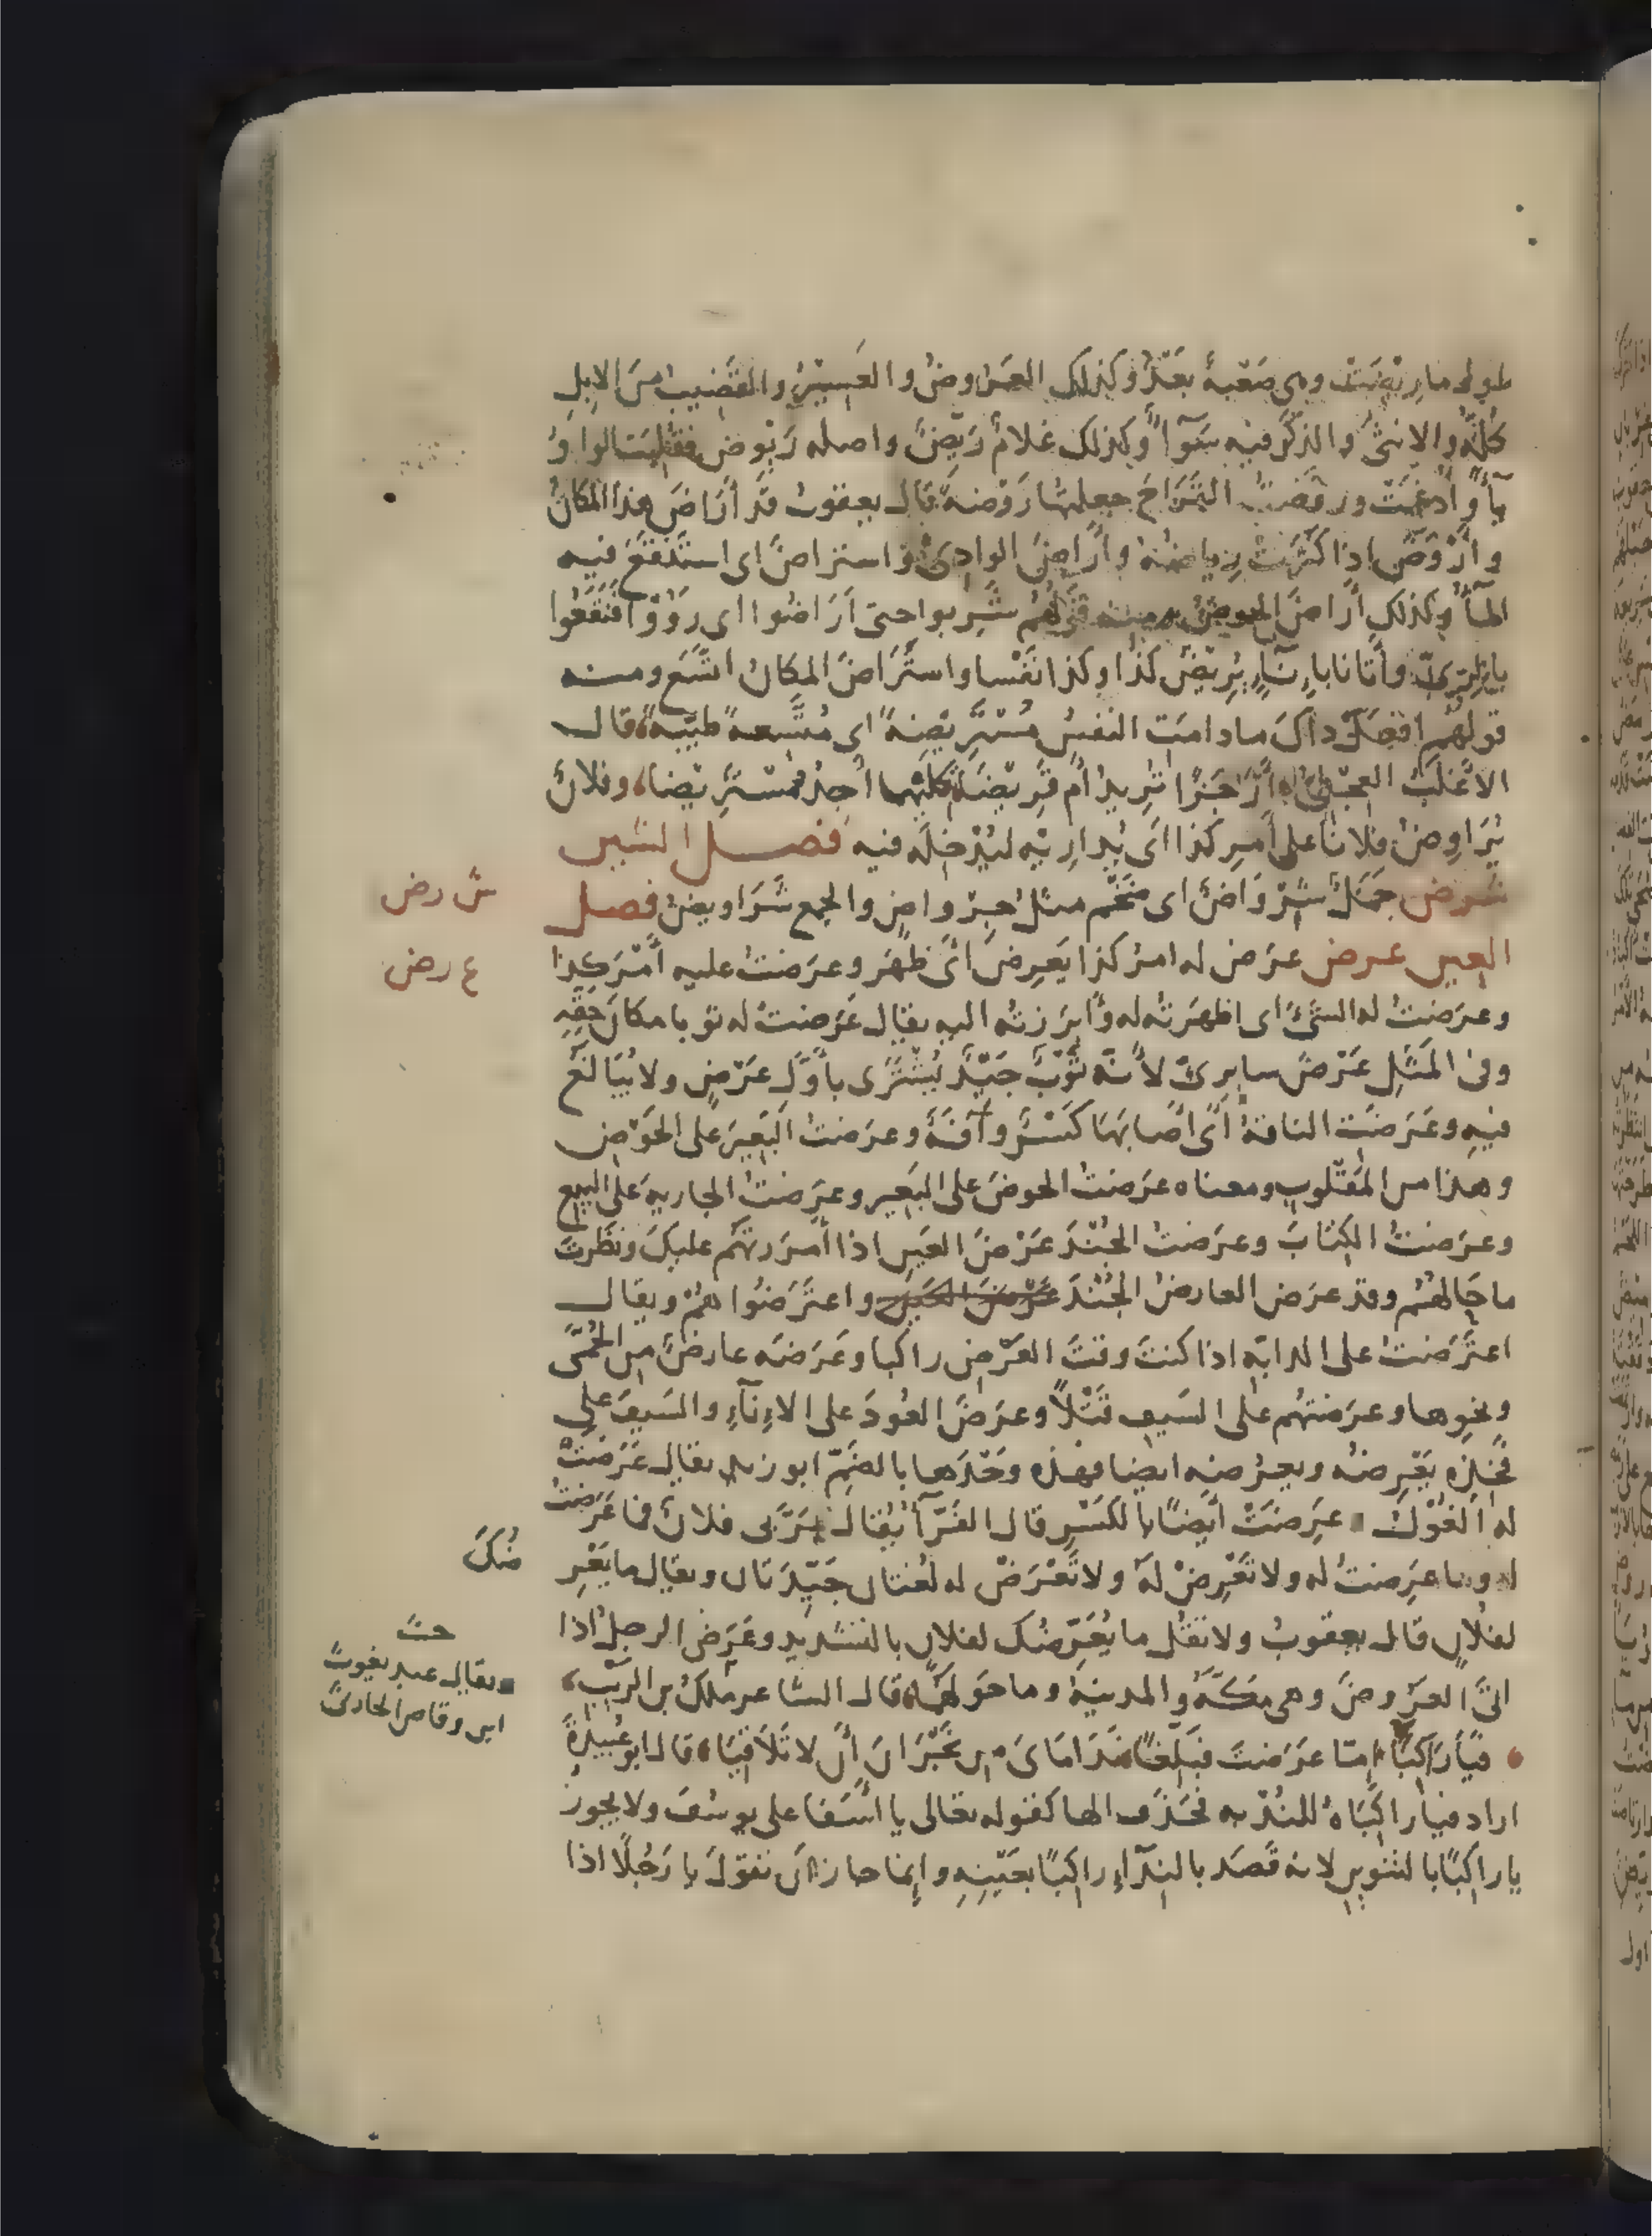 طول ما رِيْضَتْ وهى صَعْبةٌ بَعْدُ وكذلك العَرُوضُ والعَسِيْرُ والقَضِيبُ مِنَ الابِلِ
كُلِّهِ والانثى والذَكَرُ فيه سَوَآءٌ وكذلك غلامٌ رَيِّضٌ واصله رَيْوِض فقُلِبَت الواو
يآءً وادْغِمَتْ وروّضتُ القَرَاحَ جعلتها رَوْضةً قال يعقوب قَد أرَاضَ هذا المكانُ
وأرْوَضَ اذا كَثُرَتْ رِياضُهُ وأرَاضَ الوادِىْ واستراضَ اى استَنْقَعَ فيه
المآءُ وكذلك أرَاضَ الحوضُ ومنه قولهُم شَرِبوا حتى أرَاضُوا اى رَوُوْا فنَقَعُوا
بالرِىّ وأتَانا بإِنآءٍ يُرِيْضُ كَذَا وكذا نَفْسا واستَرَاضَ المكانُ اتَّسَع ومنه
قولهُم افعَلْ ذاكَ ما دامَتِ النفسُ مُسْتَرِيْضةً اى مُتَّسِعةً طيّبةً قال
الاغْلَبُ العِجْلِىُّ أرَجَزًا تُرِيدُ أم قَرِيْضَا كليهما اجِدُ مُسْتَرِيْضا وفلانٌ
يُرَاوِضُ فلانًا على أمرِ كذا اى يُدارِيْه ليُدْخِلَه فيه فصل الشين
شرض جَمَلٌ شِرْوَاضٌ اى ضَخْم مثلُ جِرْواضٍ والجمع شَرَاويضُ فصل
العين عرض عَرَض له امرُ كذا يَعرِضُ اى ظهَر وعَرَضتُ عليه أمْرَ كذا
وعَرَضتُ له الشَىْءَ اى اظهَرتُه له وأبرَزتُه اليه يقال عَرَضتُ له ثوبا مكانَ حَقِّهِ
وفى المَثَلِ عَرْضَ سابِرِىّ لأنّه ثَوْبٌ جَيّدٌ يُشْتَرَى بأوّلِ عَرْضٍ ولا يُبَالَغُ
فيهِ وعَرَضَتِ الناقةُ اى اصابَهَا كَسْرٌ وآفَةٌ وعَرَضتُ البَعِيرَ على الحَوْضِ
وهذا من المَقْلُوبِ ومعناه عرَضتُ الحوضَ على البَعِيرِ وعرَضتُ الجاريةَ على البيع
وعرَضتُ الكِتَابَ وعرَضتُ الجُنْدَ عَرْضَ العَينِ اذا أمرَرتَهُم عليكَ ونَظَرتَ
ما حَالُهُم وقد عرَض العارضُ الجُنْدَ عَرْضَ العَينِ واعتَرَضُوا هُمْ ويقال
اعتَرَضتُ على الدابّةِ اذا كنتَ وقتَ العَرْضِ راكبا وعَرَضَه عارضٌ من الحُمَّى
ونحوِها وعرَضتُهُم على السَيفِ قَتْلًا وعرَضَ العُودَ على الاِنآءِ والسَيفَ على
فَخِذِهِ يَعْرِضُه ويعرُضُه ايضا فهذه وَحْدَها بالضَمّ ابو زيد يقال عَرَضَتْ
له الغُوْلُ عَرِضَتْ أيضًا بالكَسْرِ قال الفَرّآءُ يُقال مَرَّ بى فلانٌ فما عَرَضتُ
له وما عَرِضتُ له ولا تَعْرِضْ له ولا تَعْرَضْ له لغتان جَيّدَتان ويقال ما يَعْرِ
ضُكَ
لفُلانٍ قال يعقوبُ ولا تقُل ما يُعَرّضُك لفلان بالتشديد وعَرَض الرجلُ اذا
اتَى العَرُوضَ وهى مَكّةُ والمدينةُ وما حَولَهُما قال الشاعر مٰلكُ بن الرَيْبِ
حتّ
ويقال عبد يغوث
ابن وقاص الحارثى
فيَأرَاكِبًا إمّا عَرَضتَ فبَلّغًا نَدَامَاىَ مِن نَجْرَانَ أنْ لا تَلَاقِيَا قال ابو عُبَيدةَ
اراد فيا راكِبَاهْ للنُدْبه فحَذَف الها كقوله تعالى يا اسَفا على يوسُفَ ولا يجوزُ
يا راكِبًا بالتنوين لانه قَصَد بالنِدآءِ راكِبًا بعَيْنِهِ وإنما جاز اَن تقولَ يا رَجُلًا اذا
ش رض
ع رض